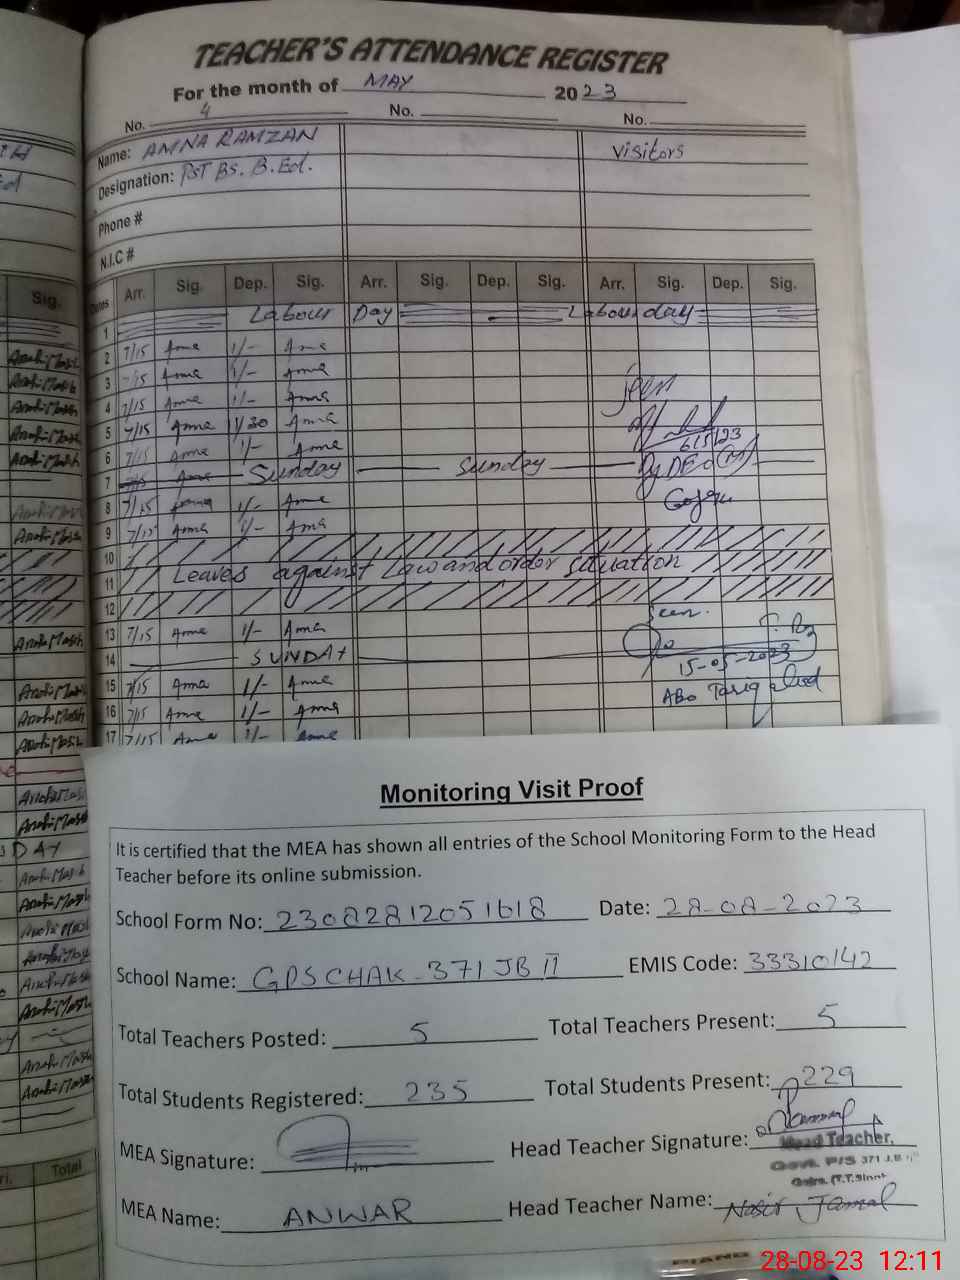 TEACHER'S ATTENDANCE REGISTER
For the month of MAY 2023
No. 4 No. No.
Name: AMNA RAMZAN Visitors
Designation: PST BS. B.Ed.
Phone #
N.I.C #
Dates Arr. Sig. Dep. Sig. Arr. Sig. Dep. Sig. Arr. Sig. Dep. Sig.
1 Labour Day Labour day
2 7/15 Amna 1/- Amna
3 7/15 Amna 1/- Amna
4 7/15 Amna 1/- Amna
Seen
5 7/15 Amna 11/30 Amna
6 7/15 Amna 1/- Amna 6/5/23
7 7/15 Amna Sunday Sunday Dy DEO (M)
8 7/15 Amna 1/- Amna Gojra
9 7/15 Amna 1/- Amna
10
11 Leaves against Law and order situation
12
Seen.
13 7/15 Amna 1/- Amna
14 SUNDAY 15-05-2023
15 7/15 Amna 1/- Amna
16 7/15 Amna 1/- Amna
17 7/15 Amna 1/- Amna
Sig.
DAY
Total
Monitoring Visit Proof
It is certified that the MEA has shown all entries of the School Monitoring Form to the Head
Teacher before its online submission.
School Form No: 23082812051618 Date: 28-08-2023
School Name: GPS CHAK-371 JB II EMIS Code: 33310142
Total Teachers Posted: 5 Total Teachers Present: 5
Total Students Registered: 235 Total Students Present: 229
MEA Signature: Head Teacher Signature:
Head Teacher,
Govt. P/S 371 J.B
MEA Name: ANWAR Head Teacher Name: Nasir Jamal
PIANO
28-08-23 12:11